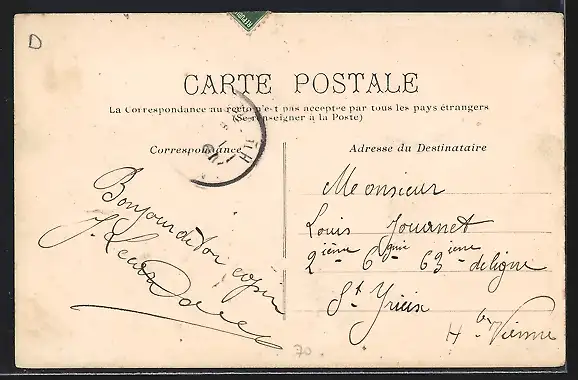 D
CARTE POSTALE
La Correspondance au recto n'est pas acceptée par tous les pays étrangers
(Se renseigner à la Poste)
Correspondance
Bonjour de ton copin
J.
Adresse du Destinataire
Monsieur
Louis Journet
2ième 6 gnie 63ieme de ligne
St Yrieix
Hte Vienne
70